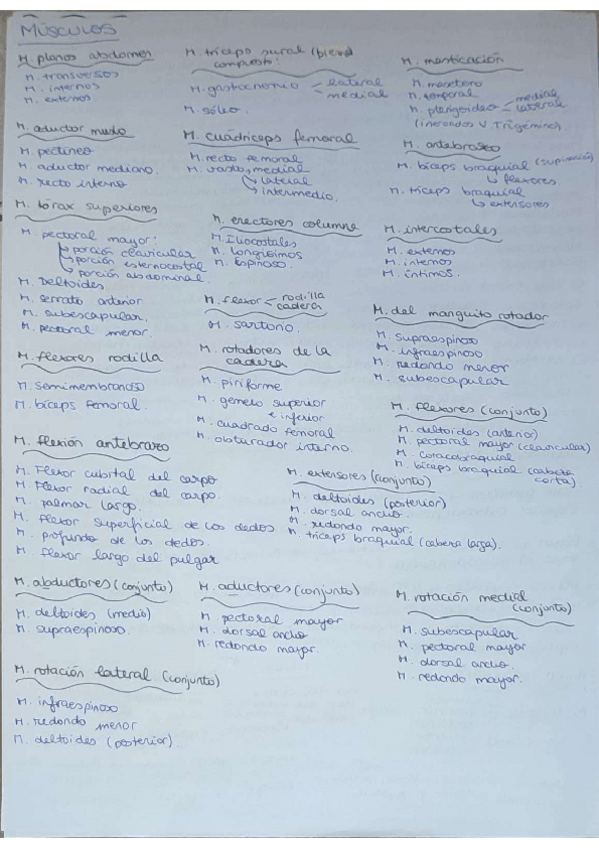 MÚSCULOS
M. planos abdomen
M. transversos
M. internos
M. externos
M. tríceps sural
compuesto:
M. gastrocnemio lateral
medial
M. sóleo.
M. masticación
M. masetero
M. temporal
M. pterigoideo medial
lateral
(inervados V. Trigémino).
M. aductor
M. pectíneo
M. aductor mediano.
M. recto interno
M. cuádriceps femoral
M. recto femoral
M. vasto, medial
lateral
intermedio.
M. antebraseo
M. bíceps braquial (supinación)
flexores
M. tríceps braquial
extensores
M. tórax superiores
M. pectoral mayor:
porción clavicular
porción esternocostal
porción abdominal.
M. Deltoides
M. serrato anterior
M. subescapular.
M. pectoral menor.
M. erectores columna
M. Iliocostales
M. longuísimos
M. espinoso.
M. intercostales
M. externos
M. internos
M. íntimos.
M. flexor rodilla
cadera
M. sartorio.
M. del manguito rotador
M. supraespinoso
M. infraespinoso
M. redondo menor
M. subescapular
M. flexores rodilla
M. semimembranoso
M. bíceps femoral.
M. rotadores de la
cadera
M. piriforme
M. gemelo superior
e inferior
M. cuadrado femoral
M. obturador interno.
M. flexores (conjunto)
M. deltoides (anterior)
M. pectoral mayor (clavicular)
M. coracobraquial
M. bíceps braquial (cabeza
corta).
M. flexión antebrazo
M. Flexor cubital del carpo
M. Flexor radial del carpo.
M. palmar largo.
M. flexor superficial de los dedos
M. profundo de los dedos.
M. flexor largo del pulgar
M. extensores (conjunto)
M. deltoides (posterior)
M. dorsal ancho.
M. redondo mayor.
M. tríceps braquial (cabeza larga).
M. abductores (conjunto)
M. deltoides (medio)
M. supraespinoso.
M. aductores (conjunto)
M. pectoral mayor
M. dorsal ancho
M. redondo mayor.
M. rotación medial
(conjunto)
M. subescapular
M. pectoral mayor
M. dorsal ancho.
M. redondo mayor.
M. rotación lateral (conjunto)
M. infraespinoso
M. redondo menor
M. deltoides (posterior).